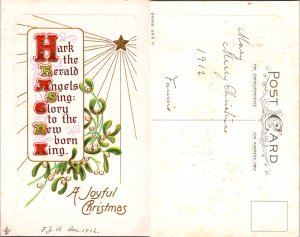 Hark
the
Herald
Angels
Sing:
Glory
to the
New
born
King.
A Joyful
Christmas
Dec. 1912.
Mary
Merry Christmas
1912
POST CARD
FOR CORRESPONDENCE
FOR ADDRESS ONLY